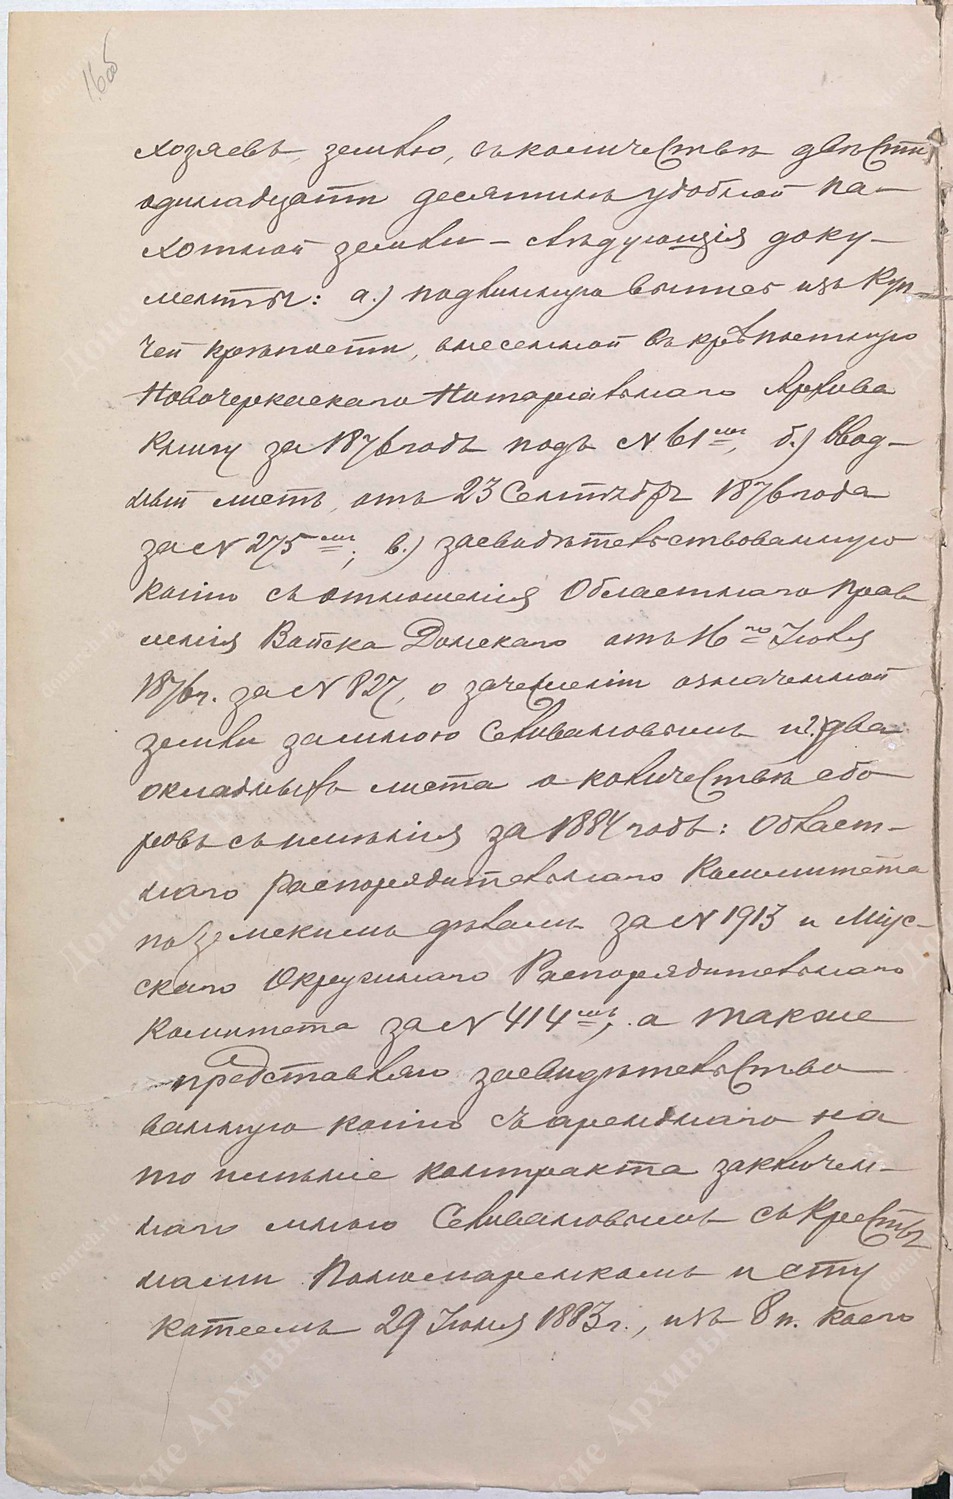 16об
хозяевъ, землю, въ количествѣ двѣсти
одинадцати десятинъ удобной па-
хотной земли – слѣдующія доку-
менты: а.) подлинную выпись изъ Куп-
чей крѣпости, внесенной въ крѣпостную
Новочеркаскаго Нотаріальнаго Архива
книгу за 1876 годъ подъ № 61мъ, б.) ввод-
ный листъ, отъ 23 Сентября 1876 года
за № 275мъ; в.) засвидѣтельствованную
копію съ отношенія Областнаго Прав
ленія Войска Донскаго отъ 16го Іюля
1876 г. за № 827, о зачесленіи означенной
земли за мною Селивановымъ и г.) два
окладныхъ листа о количествѣ сбо
ровъ съ имѣнія за 1884 годъ: Област-
наго Распорядительнаго Комитета
по Земскимъ дѣламъ за № 1913 и Міус-
скаго Окружнаго Распорядительнаго
Комитета за № 414мъ; а также
представляю засвидѣтельство
ванную копію съ аренднаго на
то имѣніе контракта заключен-
наго мною Селивановымъ съ Кресть
нами Пономаренкомъ и
29 Іюня 1883 г., изъ 8 п. коего